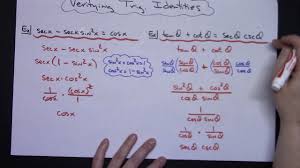 Verifying Trig Identities
Ex) secx - secx sin²x = cosx
secx - secx sin²x
secx(1 - sin²x)
sin²x + cos²x = 1
cos²x = 1 - sin²x
secx · cos²x
1/cosx · (cosx)²/1
cosx
Ex) tanθ + cotθ = secθ cscθ
tanθ + cotθ
sinθ/cosθ + cosθ/sinθ
sin²θ + cos²θ
cosθ sinθ
1
cosθ sinθ
1/cosθ · 1/sinθ